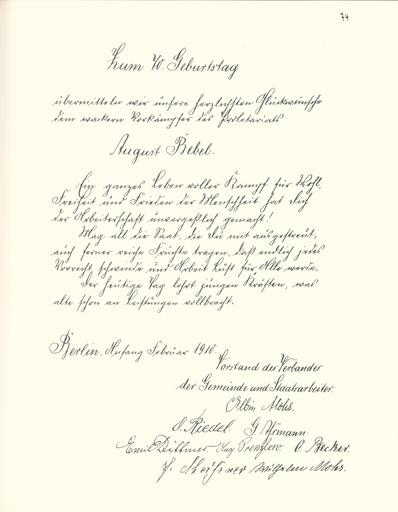 74
Zum 70. Geburtstag
übermitteln wir unsere herzlichsten Glückwünsche
dem wackern Vorkämpfer des Proletariats
August Bebel.
Ein ganzes Leben voller Kampf für Wohl,
Freiheit und Frieden der Menschheit hat Dich
der Arbeiterschaft unvergeßlich gemacht!
Mag all die Saat, die Du mit ausgestreut,
auch ferner reiche Früchte tragen, daß endlich jedes
Vorrecht schwinde und Arbeit Lust für Alle werde.
Der heutige Tag lehrt jungen Kräften, was
alte schon an Leistungen vollbracht.
Berlin, Anfang Februar 1910.
Vorstand des Verbandes
der Gemeinde und Staatsarbeiter.
Albin Mohs.
O. Riedel
Emil Dittmer Aug. Prenzlow O. Becker.
Wilhelm Mohs.